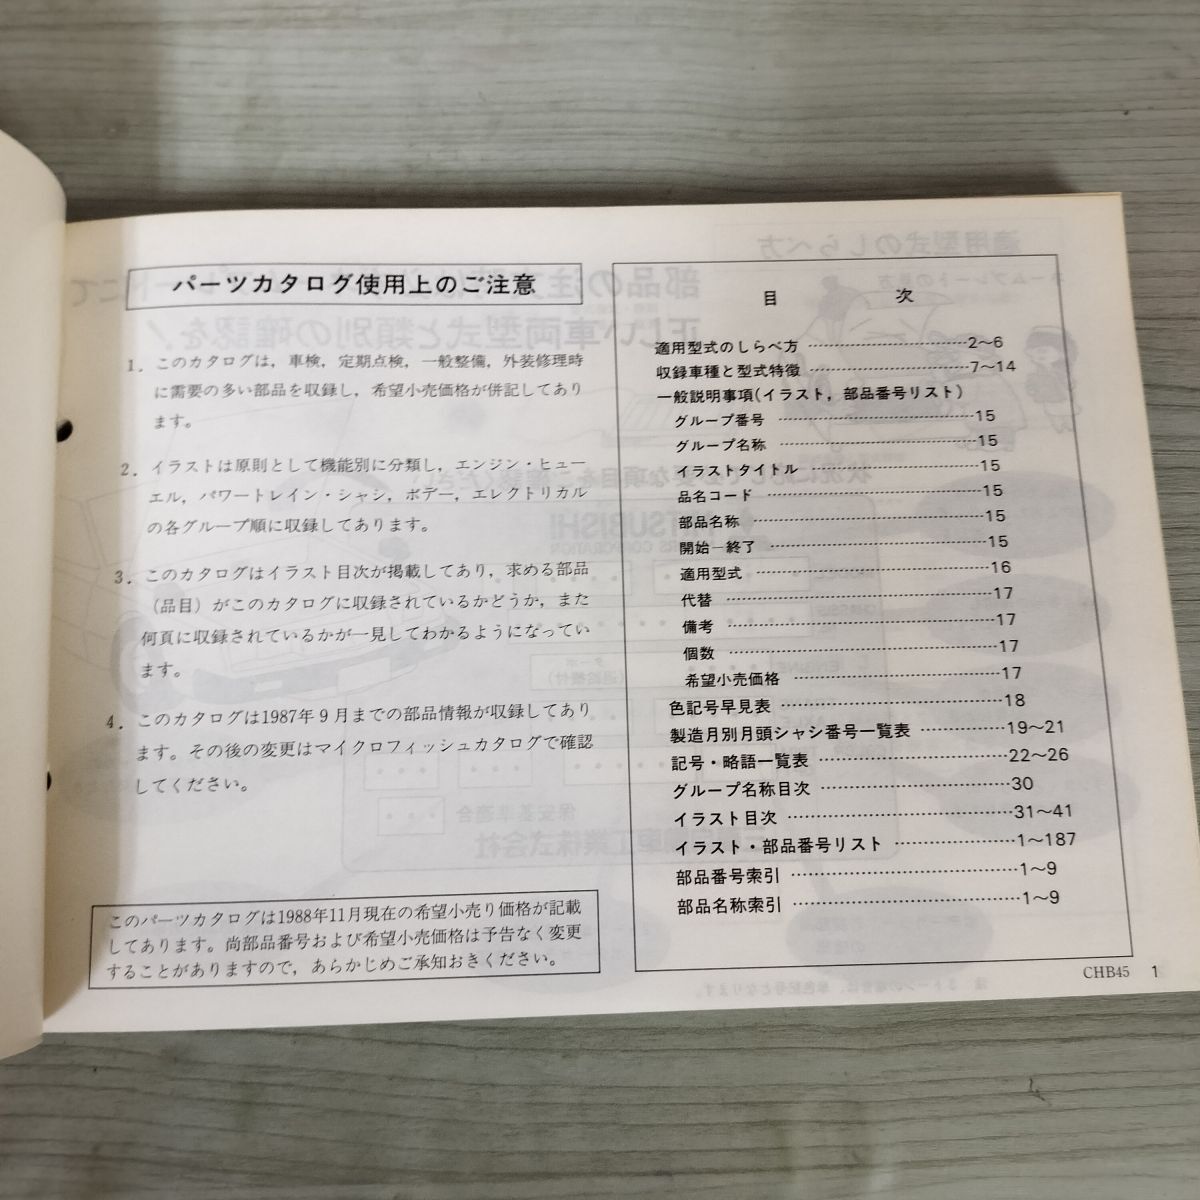 パーツカタログ使用上のご注意
1. このカタログは，車検，定期点検，一般整備，外装修理時
に需要の多い部品を収録し，希望小売価格が併記してあり
ます。
2. イラストは原則として機能別に分類し，エンジン・ヒュー
エル，パワートレイン・シャシ，ボデー，エレクトリカル
の各グループ順に収録してあります。
3. このカタログはイラスト目次が掲載してあり，求める部品
（品目）がこのカタログに収録されているかどうか，また
何頁に収録されているかが一見してわかるようになってい
ます。
4. このカタログは1987年9月までの部品情報が収録してあり
ます。その後の変更はマイクロフィッシュカタログで確認
してください。
このパーツカタログは1988年11月現在の希望小売り価格が記載
してあります。尚部品番号および希望小売価格は予告なく変更
することがありますので，あらかじめご承知おきください。
目次
適用型式のしらべ方 ……………………2～6
収録車種と型式特徴 ……………………7～14
一般説明事項（イラスト，部品番号リスト）
グループ番号 ……………………15
グループ名称 ……………………15
イラストタイトル ……………………15
品名コード ……………………15
部品名称 ……………………15
開始―終了 ……………………15
適用型式 ……………………16
代替 ……………………17
備考 ……………………17
個数 ……………………17
希望小売価格 ……………………17
色記号早見表 ……………………18
製造月別月頭シャシ番号一覧表 …………19～21
記号・略語一覧表 ……………………22～26
グループ名称目次 ……………………30
イラスト目次 ……………………31～41
イラスト・部品番号リスト ……………1～187
部品番号索引 ……………………1～9
部品名称索引 ……………………1～9
CHB45 1